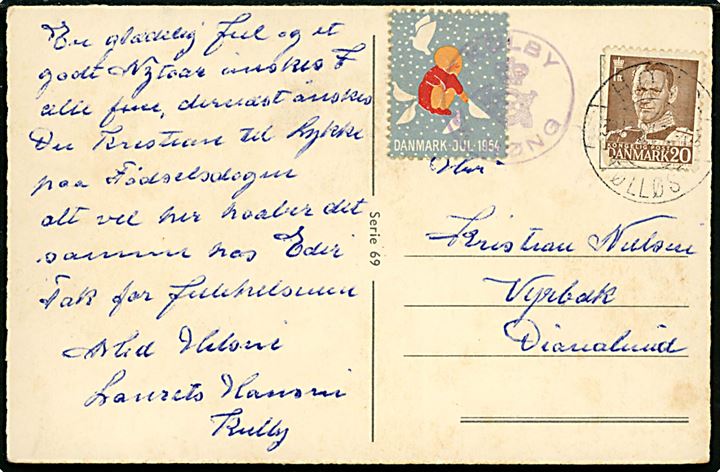 En glædelig Jul og et
godt Nytaar ønskes I
alle fire, dernæst ønskes
Du Kristian til Lykke
paa Fødselsdagen
alt vel her haaber det
samme hos Eder
Tak for Julehelsenen
Hilsen
Laurets Hansen
Kulby
Serie 69
DANMARK · JUL · 1954
KULBY
KONGELIG POST
DANMARK 20
Hr
Kristian Nielsen
Vyrbæk
Dianalund